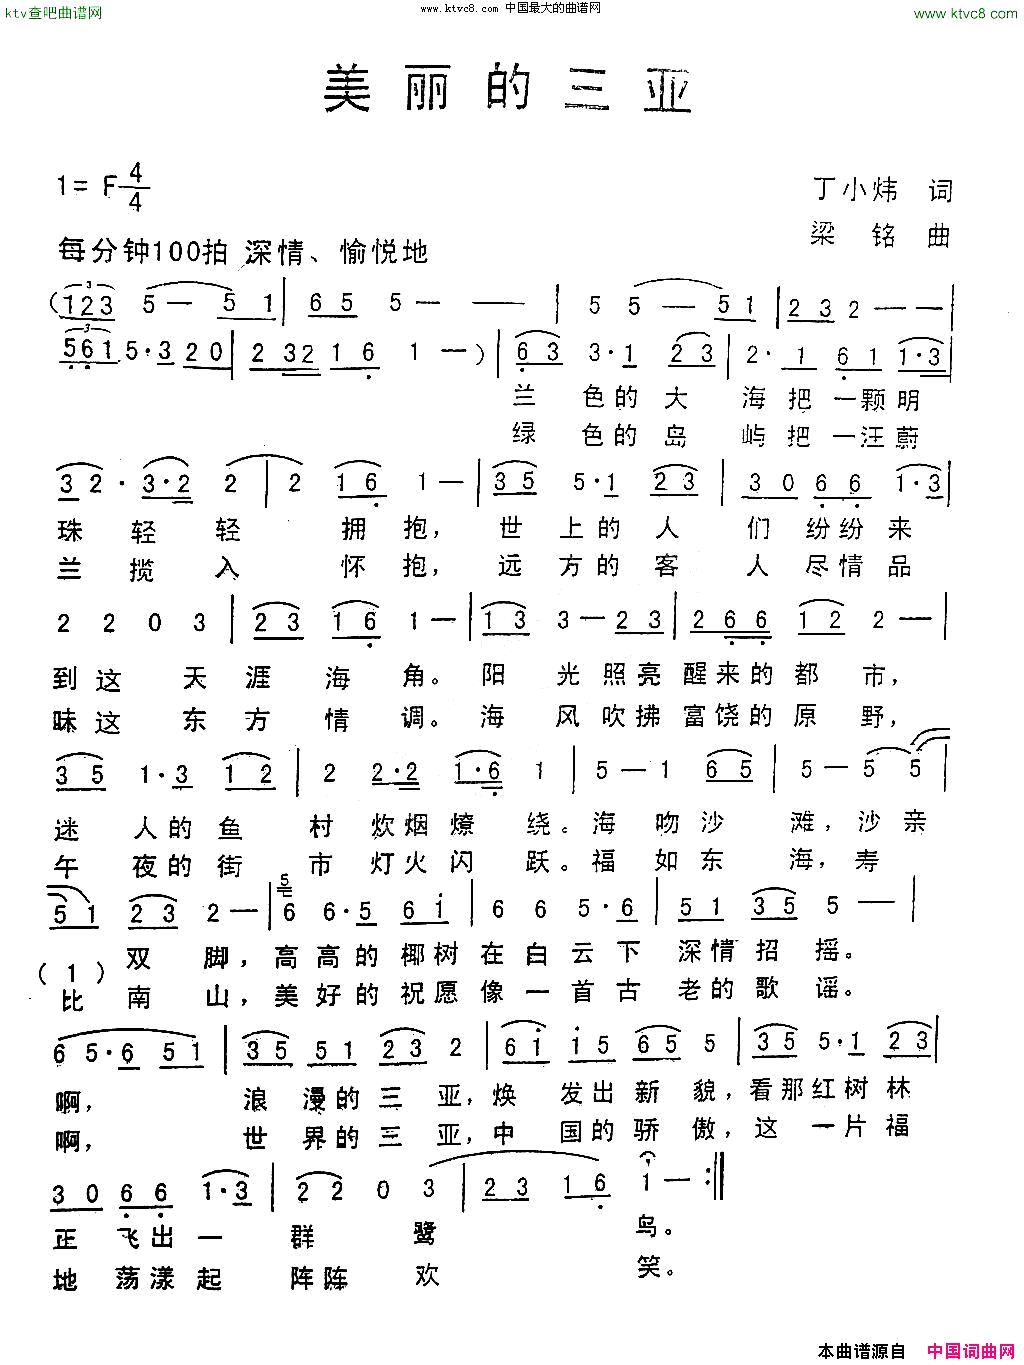 ktv查吧曲谱网
www.ktvc8.com 中国最大的曲谱网
www.ktvc8.com
美丽的三亚
1=F 4/4
丁小炜 词
梁铭 曲
每分钟100拍 深情、愉悦地
(123 5— 51 | 65 5— — | 5 5— 51 | 23 2— |
561 5·3 20 | 2 32 16 1—) | 63 3·1 23 | 2· 1 61 1·3 |
兰色的大海把一颗明
绿色的岛屿把一汪蔚
32· 3·2 2 | 2 16 1— | 35 5·1 23 | 30 66 1·3 |
珠轻轻拥抱，世上的人们纷纷来
兰揽入怀抱，远方的客人尽情品
2 2 0 3 | 23 16 1— | 13 3—23 | 266 12 2— |
到这天涯海角。阳光照亮醒来的都市，
味这东方情调。海风吹拂富饶的原野，
35 1·3 12 | 2 2·2 1·6 1 | 5—1 65 | 5— 5 5 |
迷人的鱼村炊烟燎绕。海吻沙滩，沙亲
午夜的街市灯火闪跃。福如东海，寿
51 23 2— | 5 6 6·5 6i | 6 6 5·6 | 51 35 5— |
双脚，高高的椰树在白云下深情招摇。
(1)
比南山，美好的祝愿像一首古老的歌谣。
6 5·6 51 | 35 51 23 2 | 6i i5 65 5 | 35 5·1 23 |
啊，浪漫的三亚，焕发出新貌，看那红树林
啊，世界的三亚，中国的骄傲，这一片福
30 66 1·3 | 22 0 3 | 23 16 1— :‖
正飞出一群鹭鸟。
地荡漾起阵阵欢笑。
本曲谱源自 中国词曲网